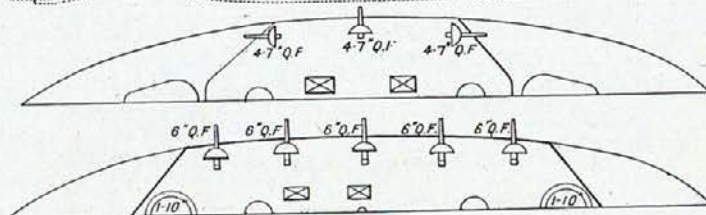 4·7"Q.F 4·7"Q.F 4·7"Q.F
6"Q.F. 6"Q.F. 6"Q.F. 6"Q.F. 6"Q.F.
1-10" 1-10"